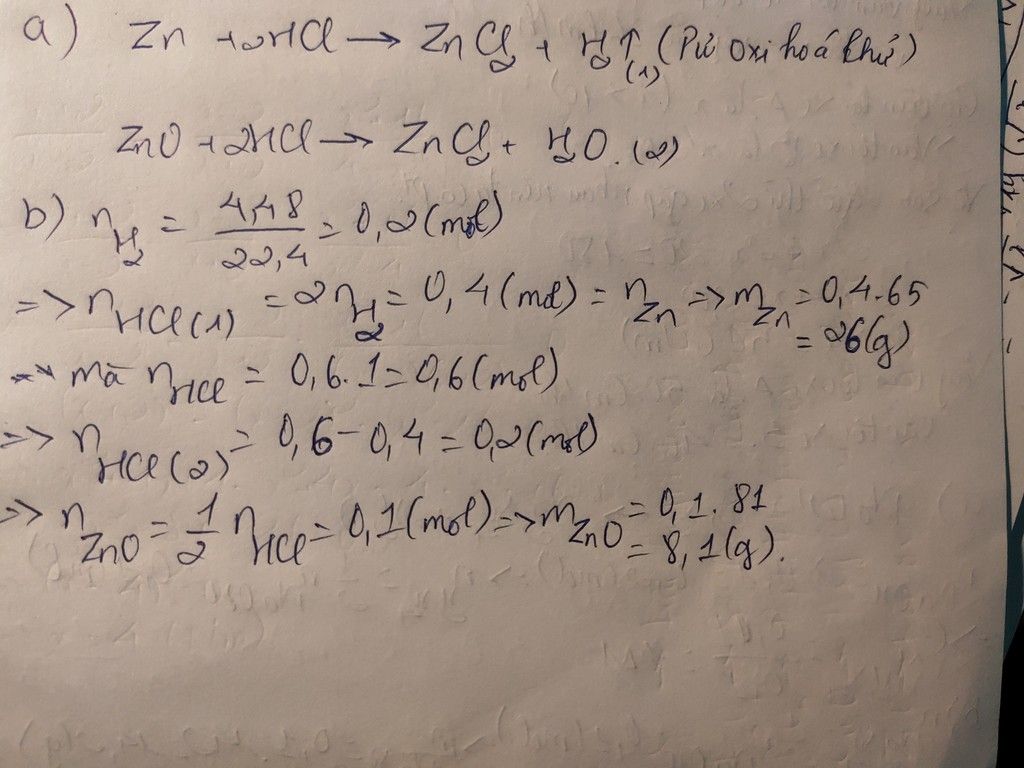 a) Zn + 2HCl → ZnCl₂ + H₂↑ (Pư oxi hoá khử)
(1)
ZnO + 2HCl → ZnCl₂ + H₂O. (2)
b) n_H₂ = 4,48/22,4 = 0,2 (mol)
=> n_HCl(1) = 2n_H₂ = 0,4 (mol) = n_Zn => m_Zn = 0,4.65
= 26(g)
mà n_HCl = 0,6.1 = 0,6 (mol)
=> n_HCl(2) = 0,6 - 0,4 = 0,2 (mol)
=> n_ZnO = 1/2 n_HCl = 0,1 (mol) => m_ZnO = 0,1.81
= 8,1(g).